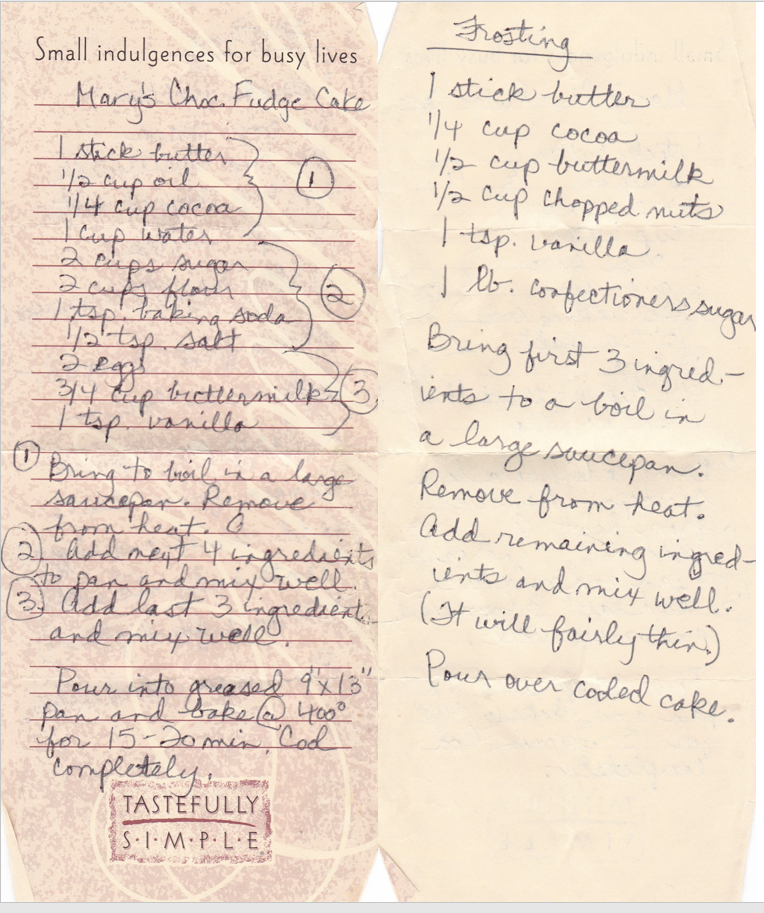 Small indulgences for busy lives
Mary's Choc. Fudge Cake
1 stick butter
1/2 cup oil
1/4 cup cocoa
1 cup water
1
2 cups sugar
2 cups flour
1 tsp. baking soda
1/2 tsp. salt
2
2 eggs
3/4 cup buttermilk
1 tsp. vanilla
3
1 Bring to boil in a large
saucepan. Remove
from heat.
2 Add next 4 ingredients
to pan and mix well.
3. Add last 3 ingredients
and mix well.
Pour into greased 9"x13"
pan and bake @ 400°
for 15-20 min. Cool
completely.
TASTEFULLY
S·I·M·P·L·E
Frosting
1 stick butter
1/4 cup cocoa
1/2 cup buttermilk
1/2 cup chopped nuts
1 tsp. vanilla
1 lb. confectioners sugar
Bring first 3 ingred-
ients to a boil in
a large saucepan.
Remove from heat.
Add remaining ingred-
ients and mix well.
(It will fairly thin.)
Pour over cooled cake.